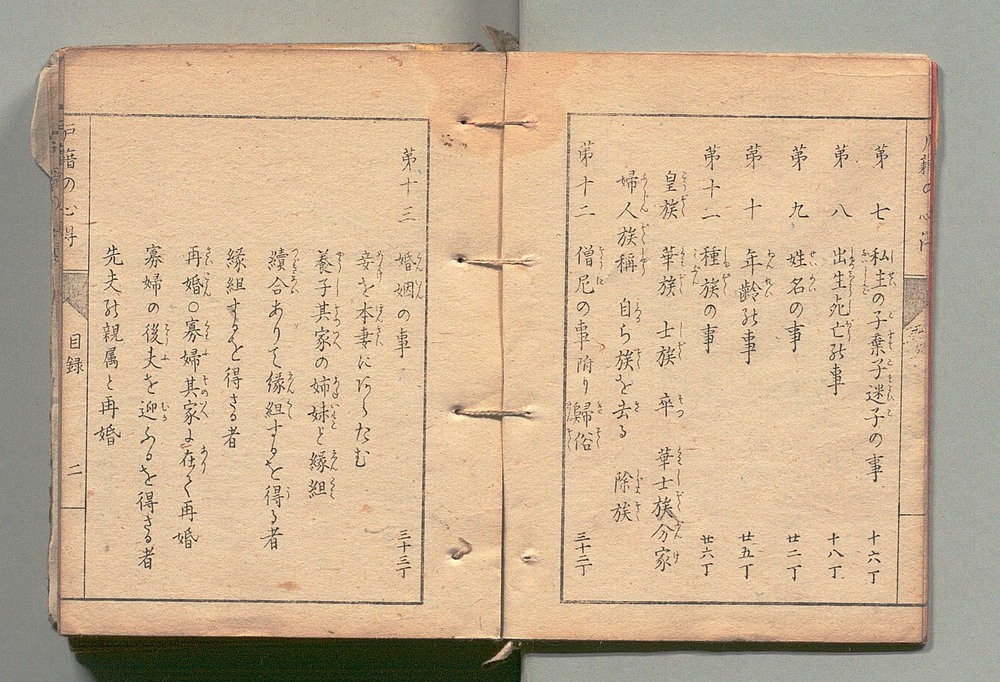 第七 私生の子棄子迷子の事 十六丁
第八 出生死亡の事 十八丁
第九 姓名の事 廿二丁
第十 年齢の事 廿五丁
第十一 種族の事 廿六丁
皇族 華族 士族 卒 華士族分家
婦人族稱 自ら族を去る 除族
第十二 僧尼の事附り歸俗 三十二丁
第十三 婚姻の事 三十三丁
妾を本妻にあらたむ
養子其家の姉妹と縁組
續合ありて縁組するを得る者
縁組するを得さる者
再婚○寡婦其家に在て再婚
寡婦の後夫を迎ふるを得さる者
先夫の親属と再婚
戸籍の心得
目録
二